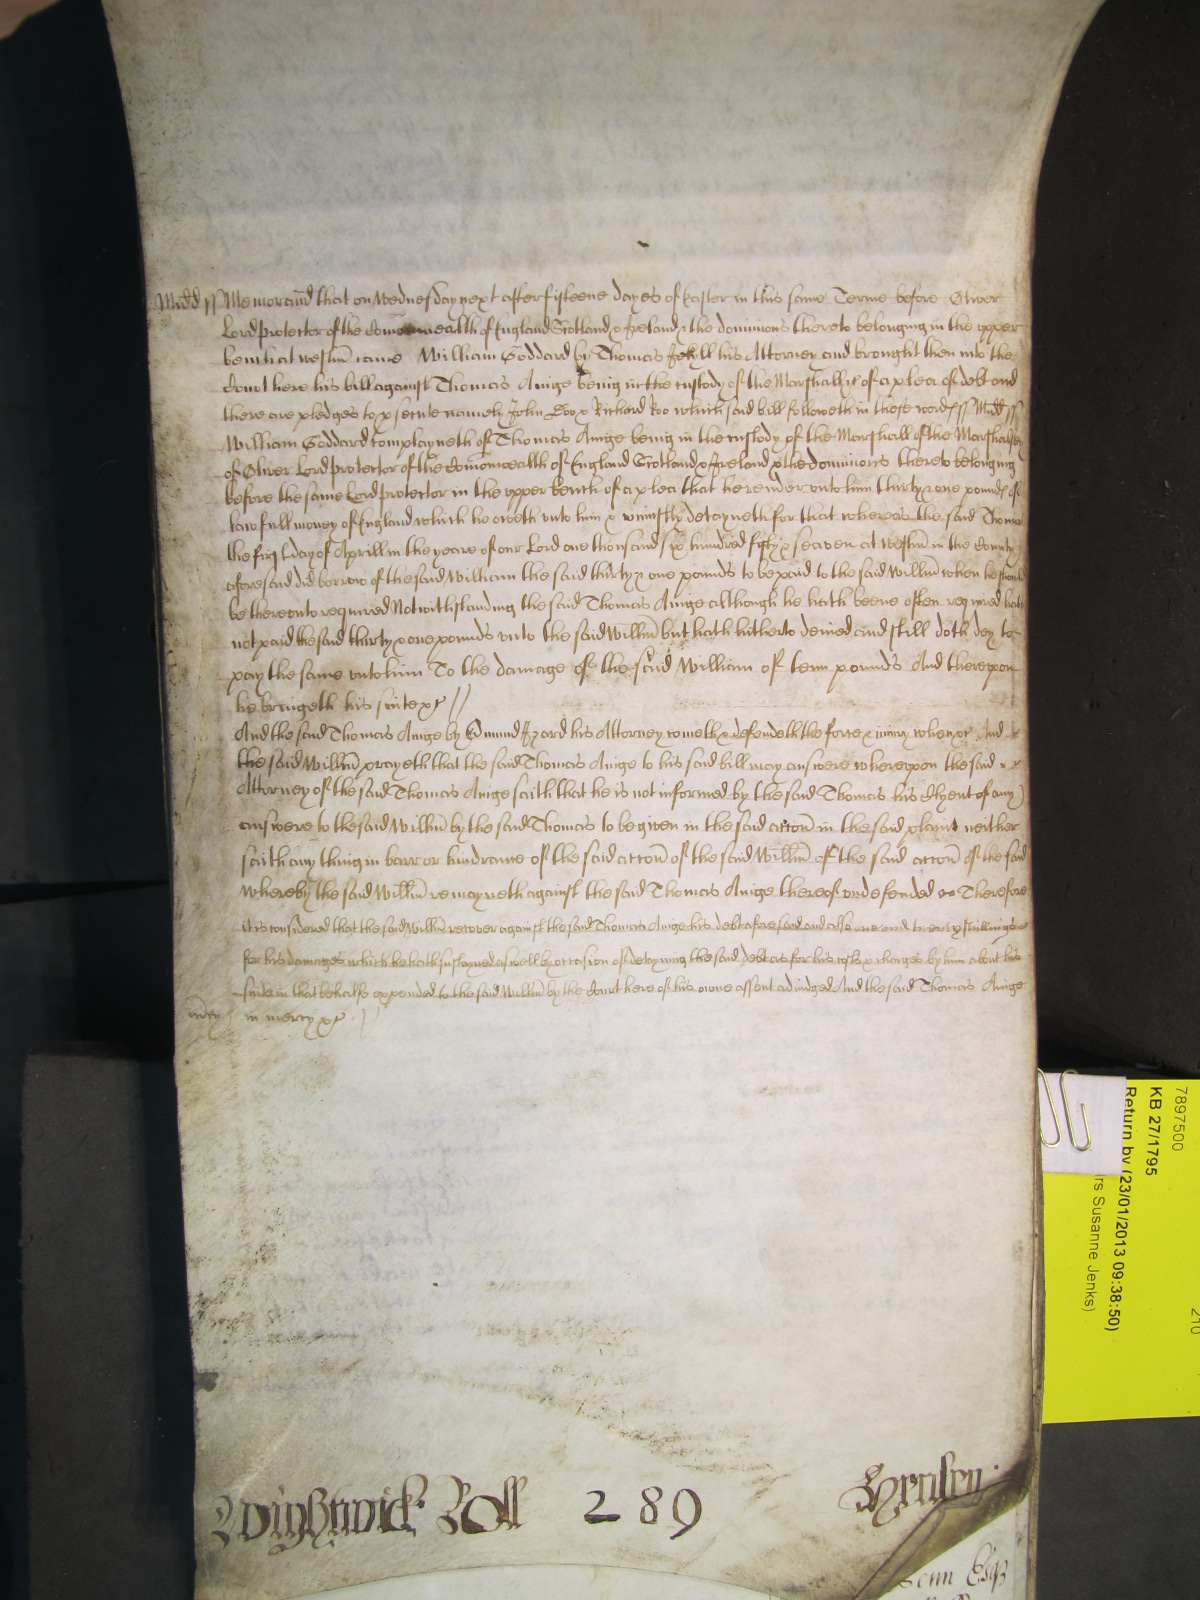 Midd ss Memorand that on Wednesday next after fifteene dayes of Easter in this same Terme before Oliver
Lord Protector of the Comonwealth of England Scotland & Ireland & the dominions thereto belonging in the upper
bench at Westm came William Goddard by Thomas Jekyll his Attorney and brought then into the
Court here his bill against Thomas Ainge being in the custody of the Marshall &c of a plea of debt and
there are pledges to psecute namely John Doo & Richard Roo which said bill followeth in these words ss Midd ss
William Goddard complayneth of Thomas Ainge being in the custody of the Marshall of the Marshalsey
of Oliver Lord Protector of the Comonwealth of England Scotland & Ireland & the dominions thereto belonging
before the same Lord Protector in the upper bench of a plea that he render unto him thirty & one pounds of
lawfull money of England which he oweth unto him & uniustly detayneth for that whereas the said Thomas
the first day of Aprill in the yeare of our Lord one thousand six hundred fifty & seaven at Westm in the County
aforesaid did borrow of the said William the said thirty & one pounds to be paid to the said Willm when he should
be thereunto required Notwithstanding the said Thomas Ainge although he hath beene often required hath
not paid the said thirty & one pounds unto the said Willm but hath hitherto denied and still doth deny to
pay the same unto him To the damage of the said William of tenn pounds And thereupon
he bringeth his suite &c //
And the said Thomas Ainge by Edmund Izard his Attorney cometh & defendeth the force & iniury when &c And
the said Willm prayeth that the said Thomas Ainge to his said bill may answere whereupon the said
Attorney of the said Thomas Ainge saith that he is not informed by the said Thomas his Clyent of any
answere to the said Willm by the said Thomas to be given in the said accon in the said plaint neither
saith any thing in barr or hindrance of the said accon of the said Willm of the said accon of the said
whereby the said Willm remayneth against the said Thomas Ainge thereof undefended Therefore
it is considered that the said Willm recover against the said Thomas Ainge his debt aforesaid and also one and twenty shillings
for his damages which he hath sustayned aswell by occasion of detayning the said debt as for his costs & charges by him about his
suite in that behalfe expended to the said Willm by the Court here of his owne assent adiudged And the said Thomas Ainge
mcy in mercy &c //
Wightwick Roll 289
7897500
KB 27/1795
Return by (23/01/2013 09:38:50)
rs Susanne Jenks)
210
Esq